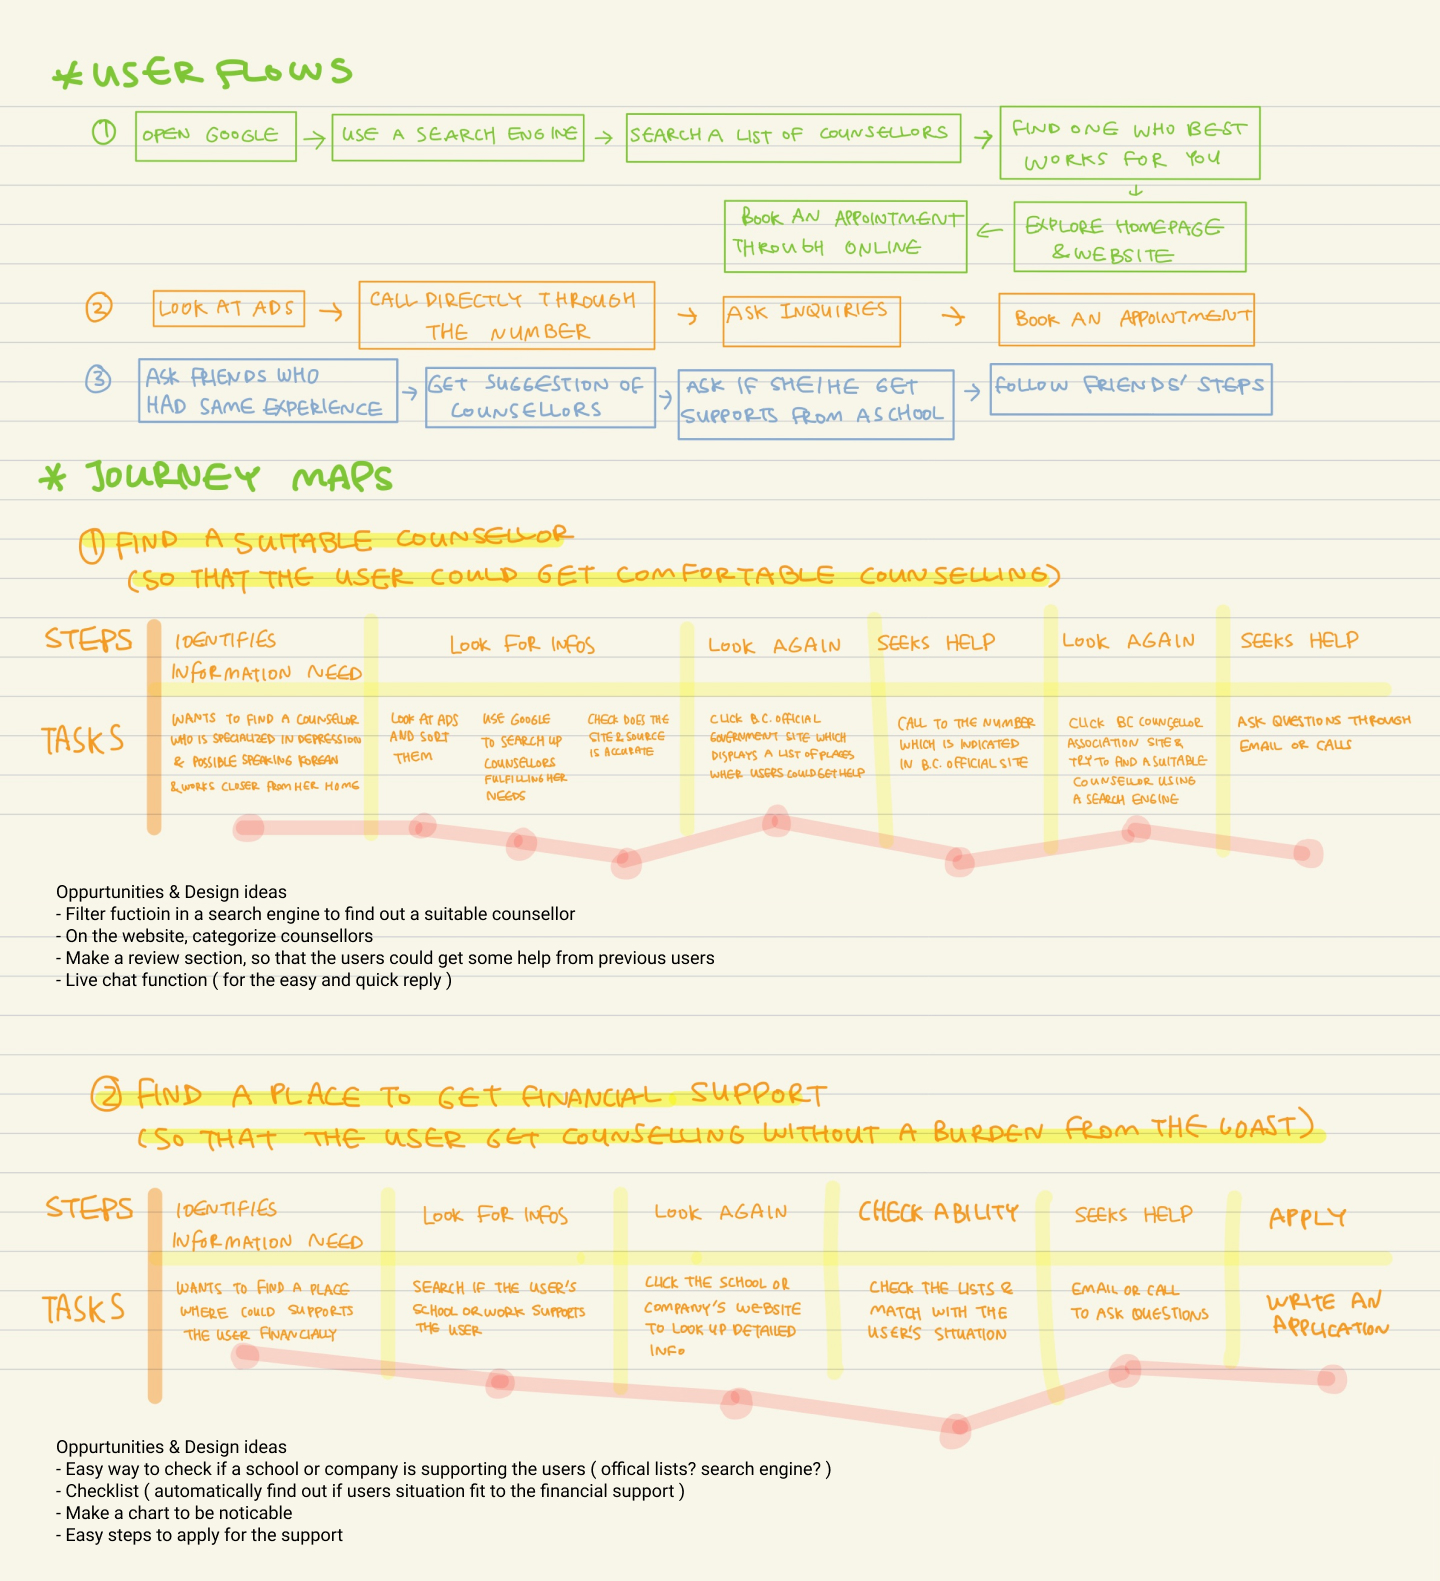 * USER FLOWS
① OPEN GOOGLE → USE A SEARCH ENGINE → SEARCH A LIST OF COUNSELLORS → FIND ONE WHO BEST
WORKS FOR YOU
↓
EXPLORE HOMEPAGE
& WEBSITE
←
BOOK AN APPOINTMENT
THROUGH ONLINE
② LOOK AT ADS → CALL DIRECTLY THROUGH
THE NUMBER
→ ASK INQUIRIES → BOOK AN APPOINTMENT
③ ASK FRIENDS WHO
HAD SAME EXPERIENCE
→ GET SUGGESTION OF
COUNSELLORS
→ ASK IF SHE/HE GET
SUPPORTS FROM A SCHOOL
→ FOLLOW FRIENDS' STEPS
* JOURNEY MAPS
① FIND A SUITABLE COUNSELLOR
(SO THAT THE USER COULD GET COMFORTABLE COUNSELLING)
STEPS
IDENTIFIES
INFORMATION NEED
LOOK FOR INFOS
LOOK AGAIN
SEEKS HELP
LOOK AGAIN
SEEKS HELP
TASKS
WANTS TO FIND A COUNSELLOR
WHO IS SPECIALIZED IN DEPRESSION
& POSSIBLE SPEAKING KOREAN
& WORKS CLOSER FROM HER HOME
LOOK AT ADS
AND SORT
THEM
USE GOOGLE
TO SEARCH UP
COUNSELLORS
FULFILLING HER
NEEDS
CHECK DOES THE
SITE & SOURCE
IS ACCURATE
CLICK B.C. OFFICIAL
GOVERNMENT SITE WHICH
DISPLAYS A LIST OF PLACES
WHER USERS COULD GET HELP
CALL TO THE NUMBER
WHICH IS INDICATED
IN B.C. OFFICIAL SITE
CLICK BC COUNCELLOR
ASSOCIATION SITE &
TRY TO FIND A SUITABLE
COUNSELLOR USING
A SEARCH ENGINE
ASK QUESTIONS THROUGH
EMAIL OR CALLS
Oppurtunities & Design ideas
- Filter fuctioin in a search engine to find out a suitable counsellor
- On the website, categorize counsellors
- Make a review section, so that the users could get some help from previous users
- Live chat function ( for the easy and quick reply )
② FIND A PLACE TO GET FINANCIAL SUPPORT
(SO THAT THE USER GET COUNSELLING WITHOUT A BURDEN FROM THE COAST)
STEPS
IDENTIFIES
INFORMATION NEED
LOOK FOR INFOS
LOOK AGAIN
CHECK ABILITY
SEEKS HELP
APPLY
TASKS
WANTS TO FIND A PLACE
WHERE COULD SUPPORTS
THE USER FINANCIALLY
SEARCH IF THE USER'S
SCHOOL OR WORK SUPPORTS
THE USER
CLICK THE SCHOOL OR
COMPANY'S WEBSITE
TO LOOK UP DETAILED
INFO
CHECK THE LISTS &
MATCH WITH THE
USER'S SITUATION
EMAIL OR CALL
TO ASK QUESTIONS
WRITE AN
APPLICATION
Oppurtunities & Design ideas
- Easy way to check if a school or company is supporting the users ( offical lists? search engine? )
- Checklist ( automatically find out if users situation fit to the financial support )
- Make a chart to be noticable
- Easy steps to apply for the support